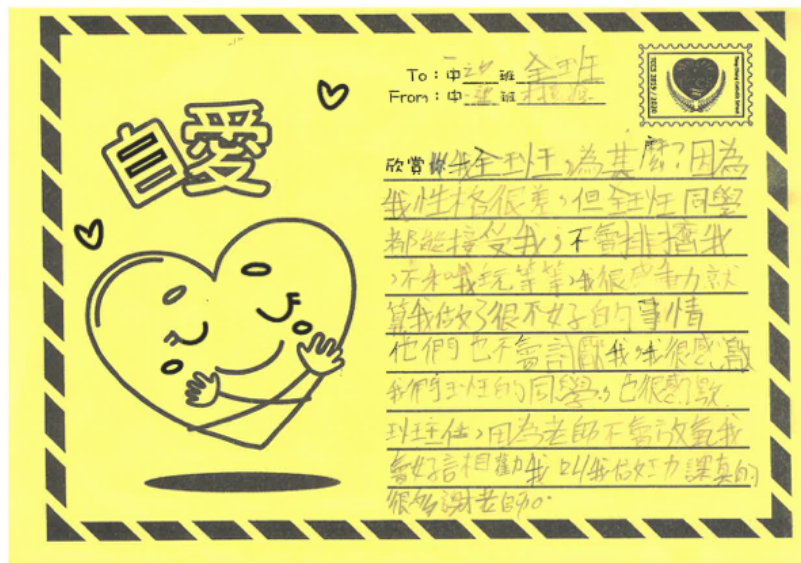 自愛
To：中 班 全班
From：中 班
欣賞 我全班，為甚麼？因為
我性格很差，但全班同學
都能接受我，不會排擠我
，不和我玩等等，我很感動就
算我做了很不好的事情
他們也不會討厭我，我很感激
我們班的同學，也很感激
班主任，因為老師不會放棄我
會好言相勸我 叫我做好功課真的
很多謝老師。
TCCS 2019/2020